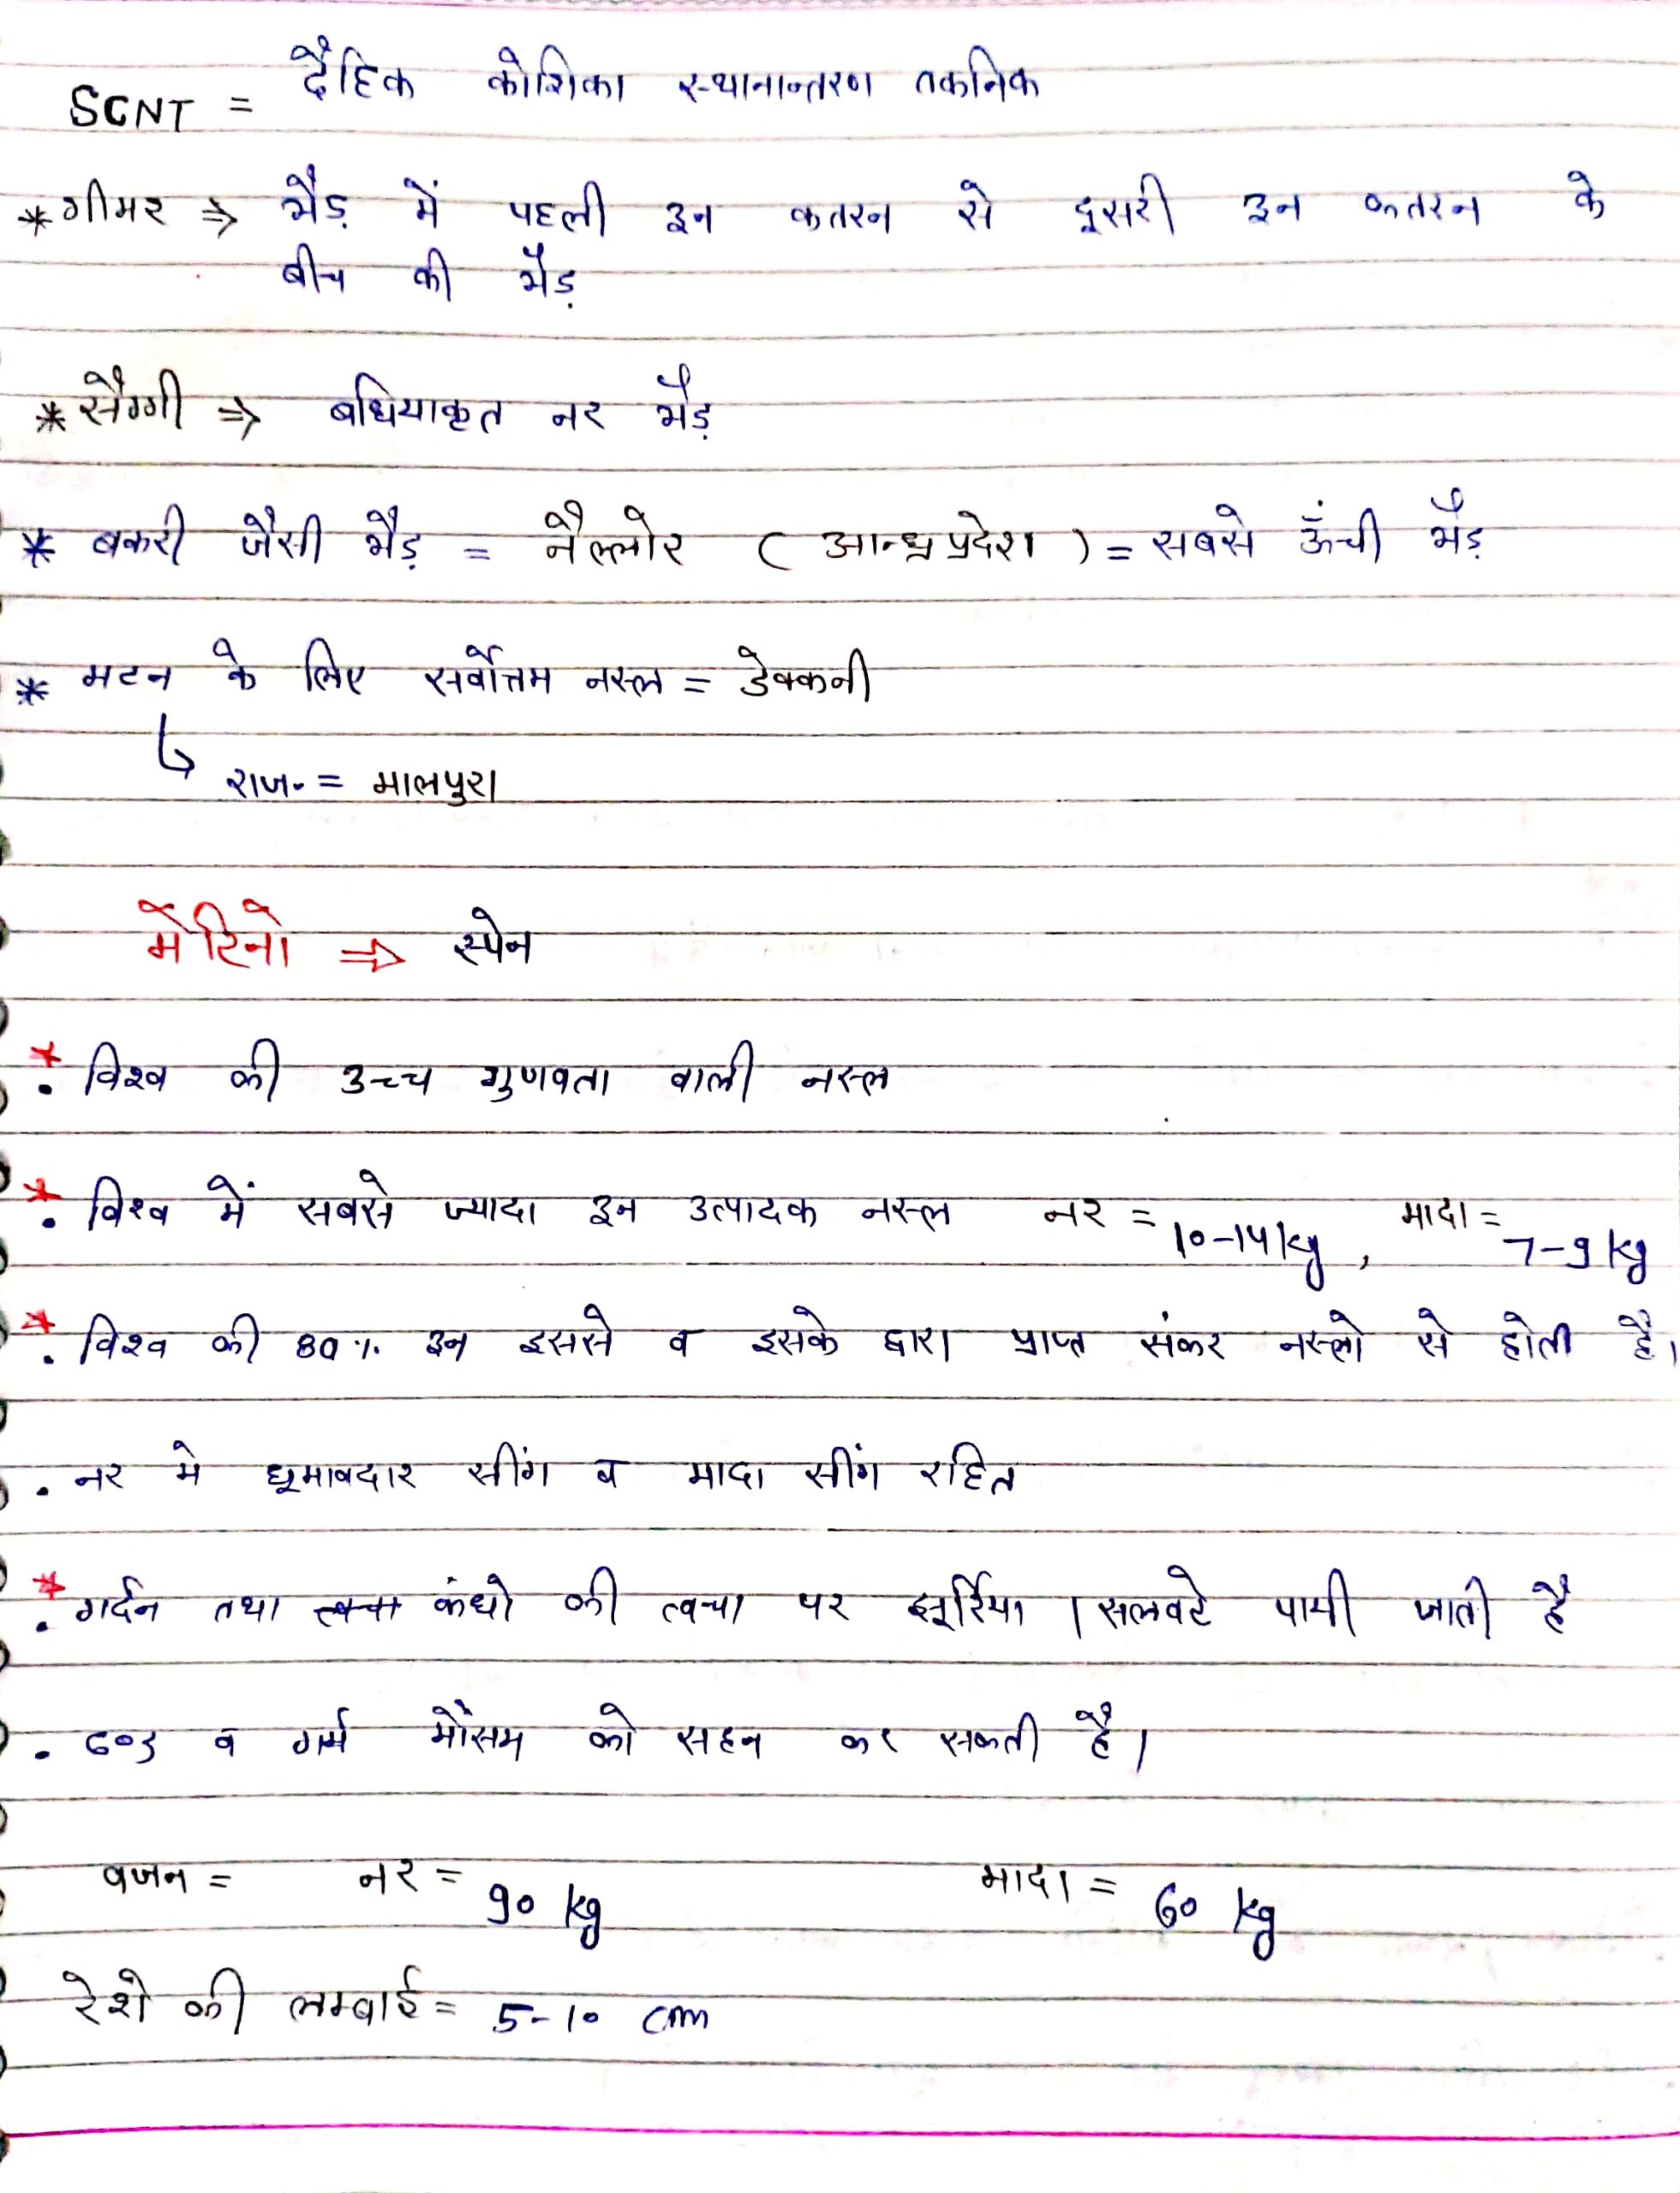 SCNT = दैहिक कोशिका स्थानान्तरण तकनिक
* गीमर ⇒ भैड़ में पहली उन कतरन से दूसरी उन कतरन के
बीच की भैड़
* सैग्गी ⇒ बधियाकृत नर भैड़
* बकरी जैसी भैड़ = नैल्लोर ( आन्ध्रप्रदेश ) = सबसे ऊँची भैड़
* मटन के लिए सर्वोत्तम नस्ल = डेक्कनी
↳ राज. = मालपुरा
मेरिनो ⇒ स्पेन
* . विश्व की उच्च गुणवता वाली नस्ल
* . विश्व में सबसे ज्यादा उन उत्पादक नस्ल नर = 10-14 kg , मादा = 7-9 kg
* . विश्व की 80 %. उन इससे व इसके द्वारा प्राप्त संकर नस्लो से होती है।
. नर मे घूमावदार सींग व मादा सींग रहित
* . गर्दन तथा त्वचा कंधो की त्वचा पर झूर्रिया / सलवटे पायी जाती है
. ठण्ड व गर्म मौसम को सहन कर सकती है।
वजन = नर = 90 kg मादा = 60 kg
रेशे की लम्बाई = 5-10 cm